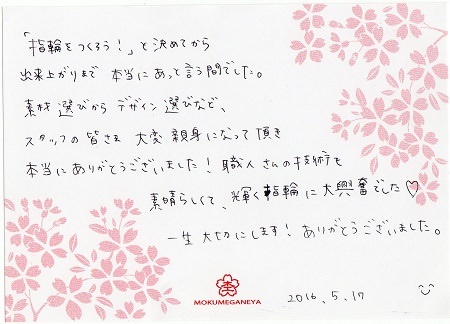 「指輪をつくろう！」と決めてから
出来上がりまで 本当にあっと言う間でした。
素材 選びから デザイン 選びなど、
スタッフの 皆さま 大変 親身になって 頂き
本当にありがとうございました！職人 さんの 技術も
素晴らしくて、輝く指輪に大興奮でした♡
一生 大切にします！ありがとうございました。
MOKUMEGANEYA
2016.5.17